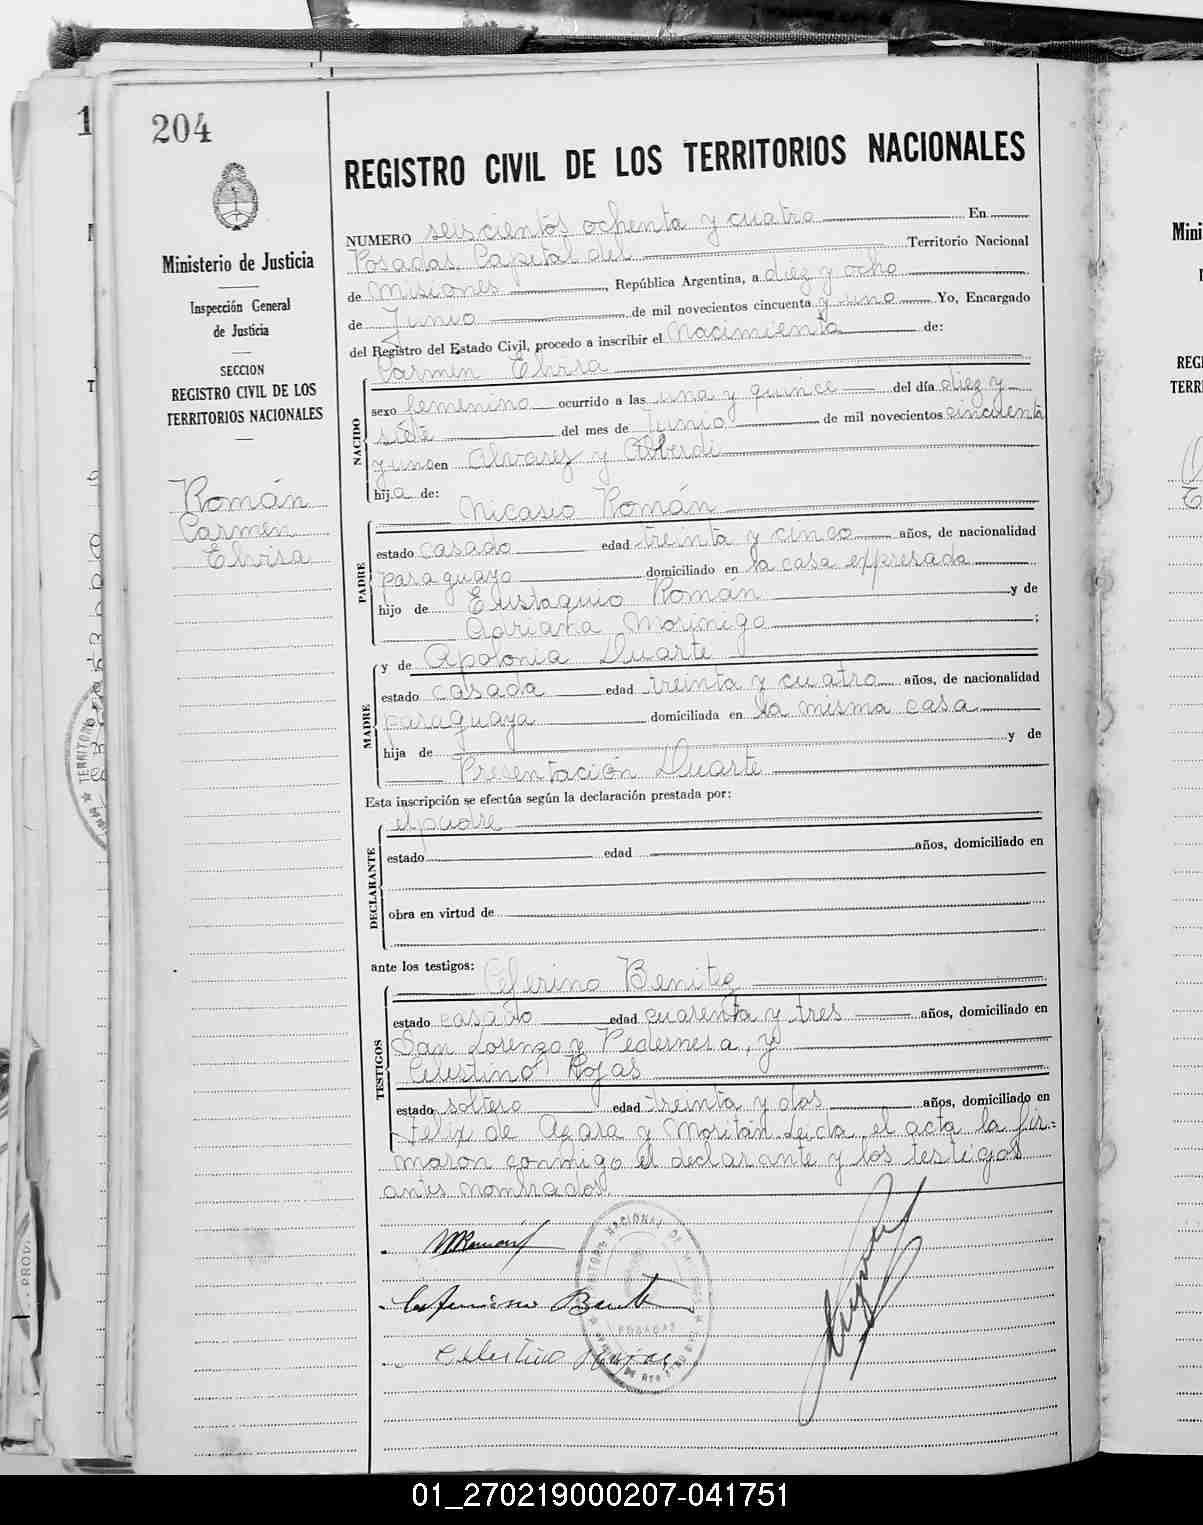 204
REGISTRO CIVIL DE LOS TERRITORIOS NACIONALES
Ministerio de Justicia
Inspección General
de Justicia
SECCION
REGISTRO CIVIL DE LOS
TERRITORIOS NACIONALES
Román
Carmen
Elvisa
NUMERO seiscientos ochenta y cuatro En
Posadas Capital del Territorio Nacional
de Misiones, República Argentina, a diez y ocho
de Junio de mil novecientos cincuenta y uno Yo, Encargado
del Registro del Estado Civil, procedo a inscribir el Nacimiento de:
Carmen Elvisa
NACIDO
sexo femenino ocurrido a las una y quince del día diez y
siete del mes de Junio de mil novecientos cincuenta
y uno en Alvarez y Alberdi
hija de:
Nicasio Román
PADRE
estado casado edad treinta y cinco años, de nacionalidad
paraguayo domiciliado en la casa expresada
hijo de Eustaquio Román y de
Adriana Morinigo;
y de Apolonia Duarte
MADRE
estado casada edad treinta y cuatro años, de nacionalidad
paraguaya domiciliada en la misma casa
hija de y de
Presentación Duarte
Esta inscripción se efectúa según la declaración prestada por:
el padre
DECLARANTE
estado edad años, domiciliado en
obra en virtud de
ante los testigos:
Ceferino Benitez
TESTIGOS
estado casado edad cuarenta y tres años, domiciliado en
San Lorenzo y Pedernera, y
Celestino Rojas
estado soltero edad treinta y dos años, domiciliado en
Felix de Azara y Moritán Leida el acta la fir=
maron conmigo el declarante y los testigos
antes nombrados.
NRomán
Ceferino Benit
Celestino Rojas
POSADAS
Mini
REGI
TERRI
01_270219000207-041751